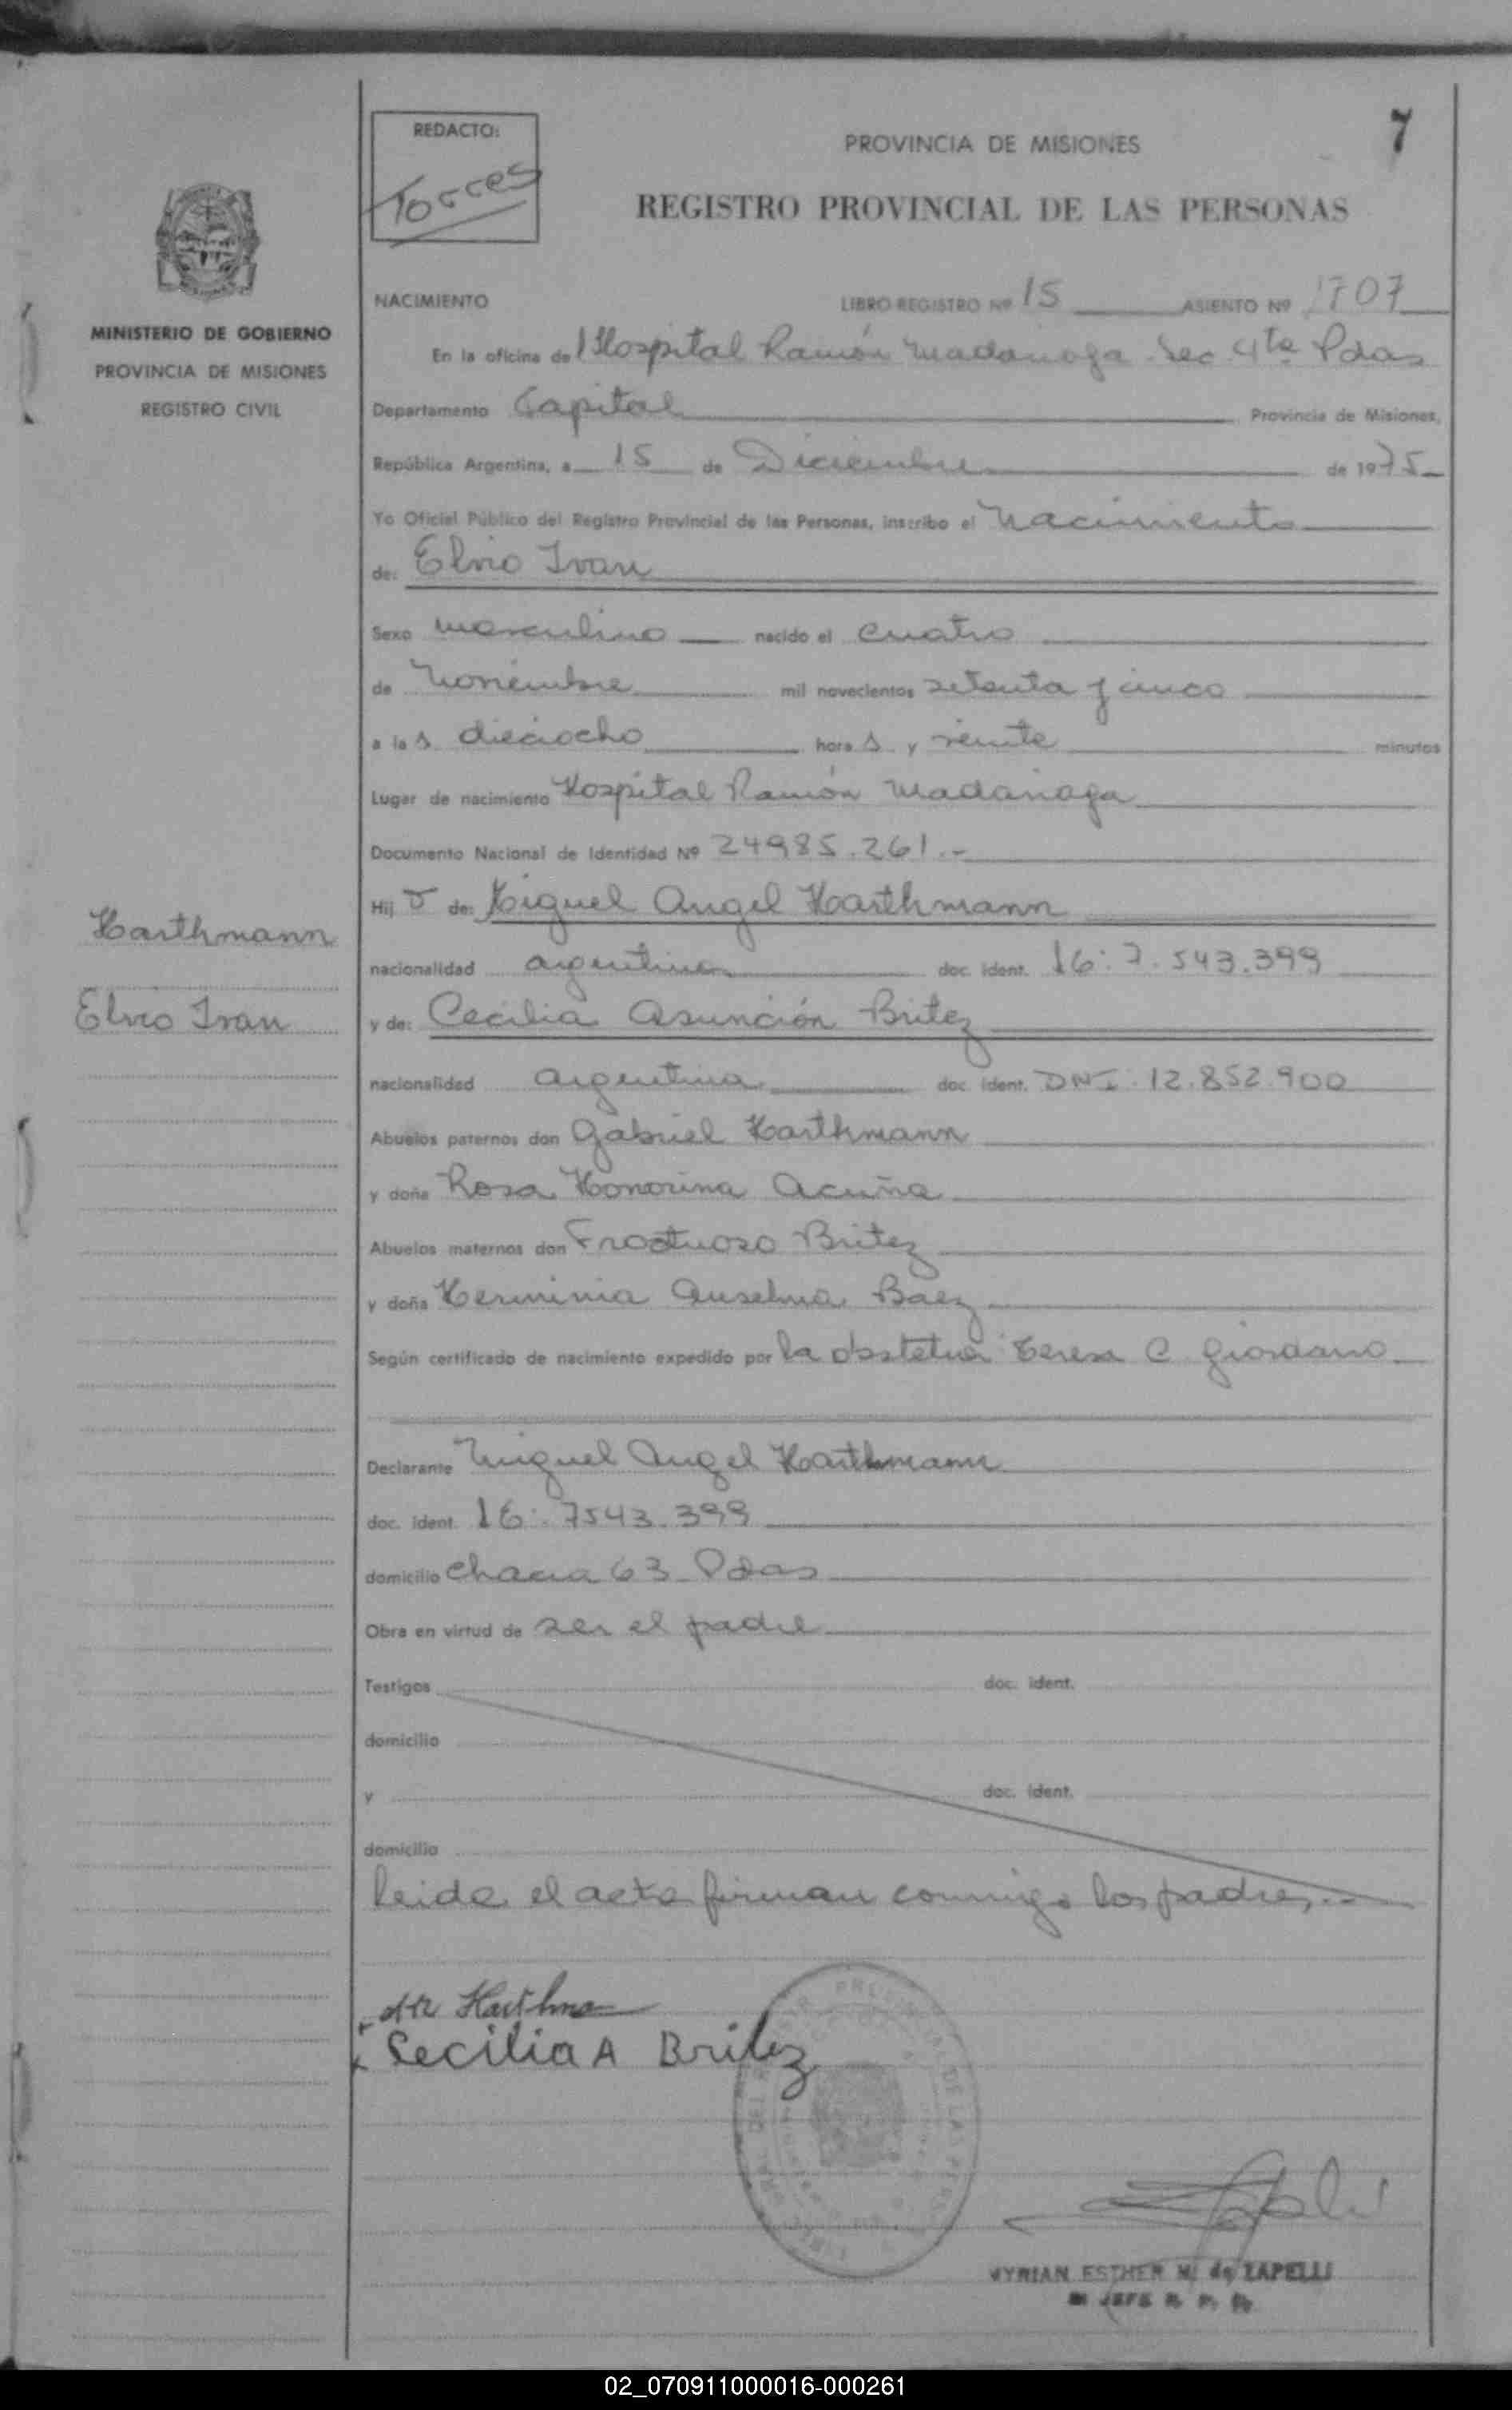 REDACTO:
Torces
7
PROVINCIA DE MISIONES
REGISTRO PROVINCIAL DE LAS PERSONAS
MINISTERIO DE GOBIERNO
PROVINCIA DE MISIONES
REGISTRO CIVIL
NACIMIENTO LIBRO REGISTRO Nº 15 ASIENTO Nº 1707
En la oficina del Hospital Ramón Madariaga Sec 4ta Pdas
Departamento Capital Provincia de Misiones,
República Argentina, a 15 de Diciembre de 1975
Yo Oficial Público del Registro Provincial de las Personas, inscribo el Nacimiento
de: Elvio Ivan
Sexo masculino nacido el cuatro
de Noviembre mil novecientos setenta y cinco
a las dieciocho horas y veinte minutos
Lugar de nacimiento Hospital Ramón Madariaga
Documento Nacional de Identidad Nº 24985.261.-
Hijo de: Miguel Angel Harthmann
Harthmann
nacionalidad argentina doc. ident. 16: 7.543.399
Elvio Ivan
y de: Cecilia Asunción Britez
nacionalidad argentina doc. ident. DNI. 12.852.900
Abuelos paternos don Gabriel Harthmann
y doña Rosa Honorina Acuña
Abuelos maternos don Froctuoso Britez
y doña Herminia Anselma Baez
Según certificado de nacimiento expedido por la obstetra Teresa C Giordano
Declarante Miguel Angel Harthmann
doc. ident. 16: 7543.399
domicilio Chacra 63 Pdas
Obra en virtud de ser el padre
Testigos doc. ident.
domicilio
y doc. ident.
domicilio
Leida el acta firman conmigo los padres.-
Harthma
Cecilia A Britez
MYRIAN ESTHER M. de ZAPELLI
JEFE R. P. P.
02_070911000016-000261